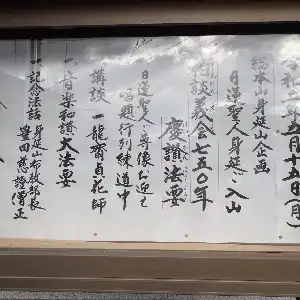 五月十五日(月)
総本山身延山企画
日蓮聖人身延ご入山
開談義会七五〇年
慶讃法要
日蓮聖人ご尊像お迎え
唱題行列練道中
講談 一龍斎貞花師
一、音楽和讃大法要
一、記念法話 身延山布教部長
慈證僧正